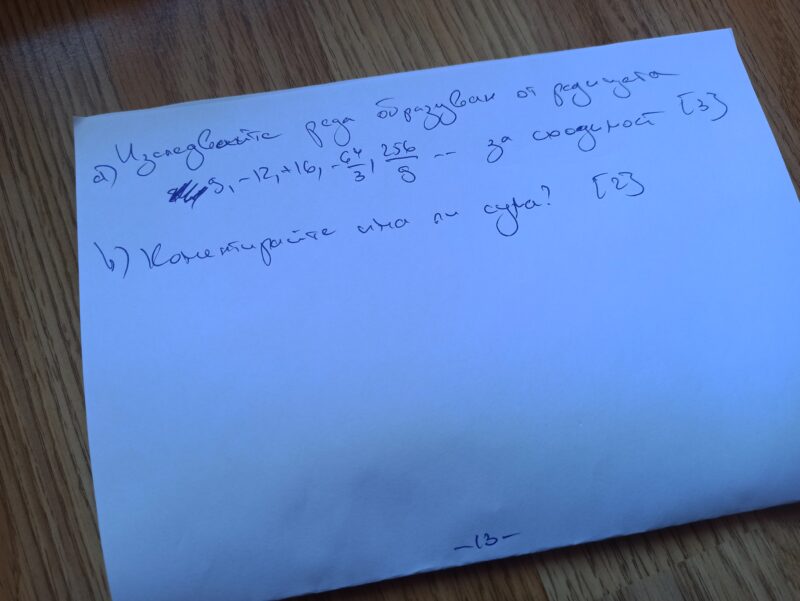 a) Изследвайте реда образуван от редицата
9, -12, +16, -64/3, 256/9 ... за сходимост [3]
b) Коментирайте има ли сума? [2]
-13-